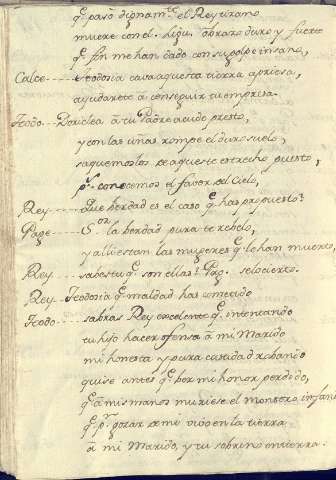 q̃ pasó dignamte. el Rey tirano
muere con el. higu. o brazo duro y fuerte
q̃ fin me han dado con su golpe insano,
Calce---- Teodosia cava aquesta tierra apriesa,
ayudarete à conseguir tu empresa.
Teodo.-- Doriclea à tu Padre acude presto,
y con las uñas rompe el duro suelo,
saquemoslos de aqueste estrecho puesto,
pr. conocemos el favor del Cielo,
Rey------ Que verdad es el caso q̃ has propuesto?
Page---- Sor. la verdad pura te rebelo,
y alli estan las mugeres q̃ lo han muerto,
Rey------ sabes tu q̃ son ellas? Pag. se lo cierto.
Rey---- Teodosia q̃ maldad has cometido
Teodo----- sabras Rey excelente q̃ intentando
tu hijo hacer ofensa à mi Marido
mi honesta y pura castidad robando
quise antes q̃ por mi honor perdido,
q̃ à mis manos muriese el Monstero infan
q̃ pr. gozar de mi vivo en la tierra
à mi Marido, y tu sobrino entierra.